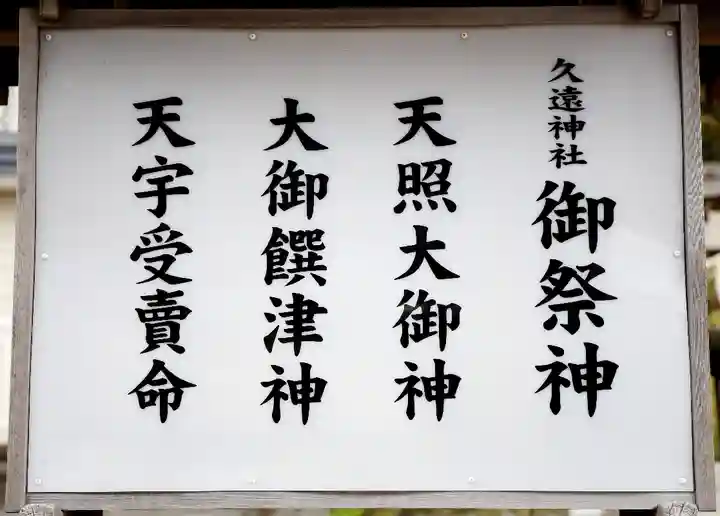 久遠神社 御祭神
天照大御神
大御饌津神
天宇受賣命